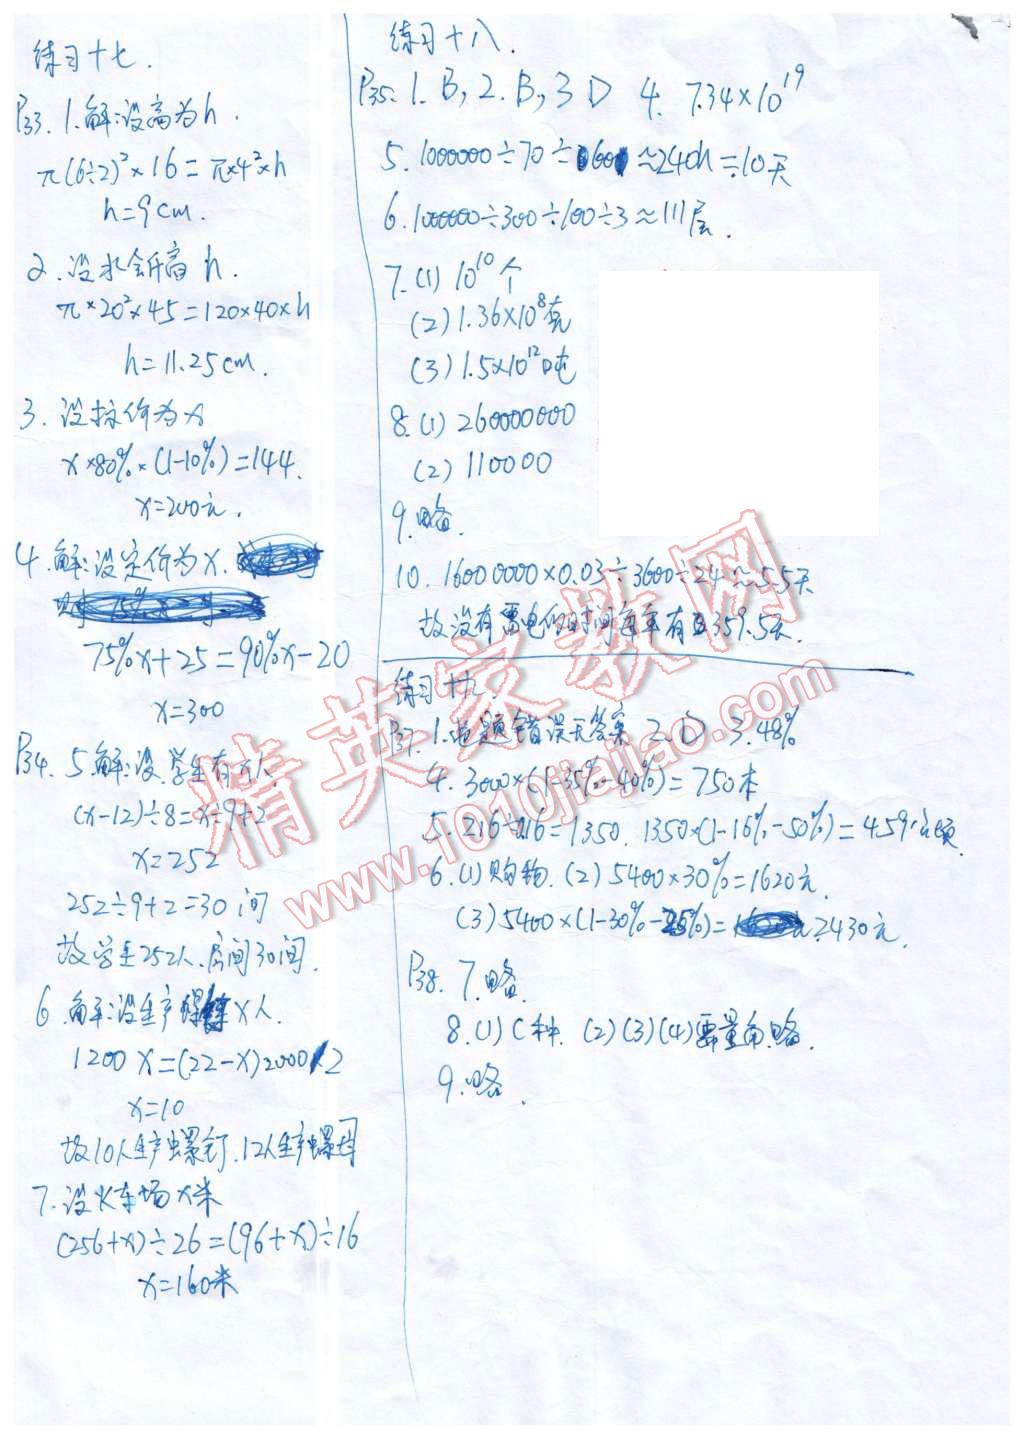 练习十七.
P33. 1.解:设高为h.
π(6÷2)²×16=π×4²×h
h=9cm.
2.设水会升高h.
π×20²×45=120×40×h
h=11.25cm.
3.设标价为x
x×80%×(1-10%)=144.
x=200元.
4.解:设定价为x.
75%x+25=90%x-20
x=300
P34. 5.解:设学生有x人
(x-12)÷8=x÷9+2
x=252
252÷9+2=30间
故学生252人.房间30间.
6.解:设生产螺钉x人.
1200x=(22-x)2000÷2
x=10
故10人生产螺钉.12人生产螺母
7.设火车场x米
(256+x)÷26=(96+x)÷16
x=160米
练习十八.
P35. 1.B, 2.B, 3 D 4. 7.34×10¹⁹
5. 1000000÷70÷60≈240h=10天
6. 1000000÷300÷100÷3≈111层.
7.(1) 10¹⁰个
(2) 1.36×10⁸克
(3) 1.5×10¹²吨
8.(1) 260000000
(2) 110000
9.略.
10. 16000000×0.03÷3600÷24≈5.5天
故没有雷电的时间每年有359.5天.
练习十九.
P37. 1.此题错误无答案 2.D 3.48%
4. 3000×(1-35%-40%)=750本
5. 216÷16=1350. 1350×(1-16%-50%)=459公顷.
6.(1)购物.(2)5400×30%=1620元.
(3)5400×(1-30%-25%)=2430元.
P38. 7.略.
8.(1)C种. (2)(3)(4)需量角.略.
9.略.
精英家教网
www.1010jiajiao.com